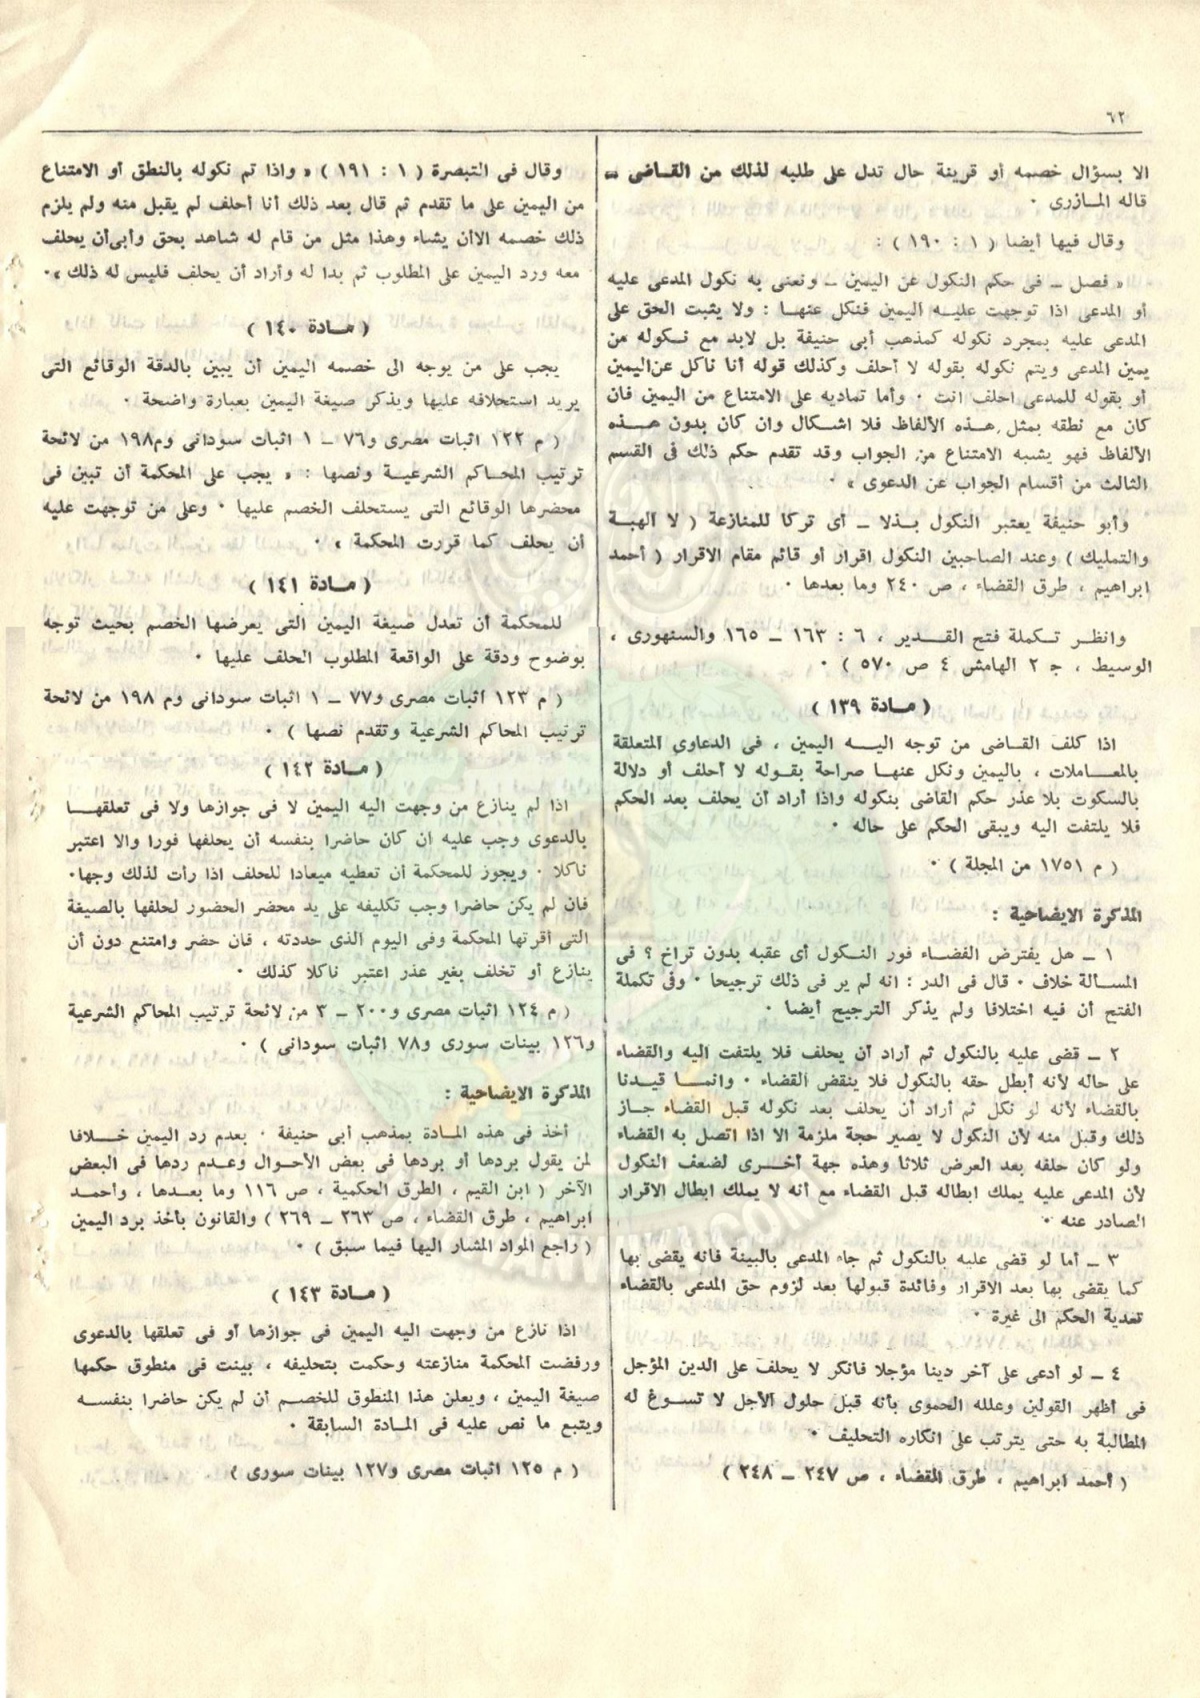 ٦٢
الا بسؤال خصمه أو قرينة حال تدل على طلبه لذلك من القاضى »
قاله المازرى ٠
وقال فيها أيضا ( ١ : ١٩٠ ) :
« فصل ــ فى حكم النكول عن اليمين ــ ونعنى به نكول المدعى عليه
أو المدعى اذا توجهت عليه اليمين فنكل عنها : ولا يثبت الحق على
المدعى عليه بمجرد نكوله كمذهب أبى حنيفة بل لابد مع نكوله من
يمين المدعى ويتم نكوله بقوله لا أحلف وكذلك قوله أنا ناكل عن اليمين
أو بقوله للمدعى احلف انت ٠ وأما تماديه على الامتناع من اليمين فان
كان مع نطقه بمثل هذه الألفاظ فلا اشكال وان كان بدون هذه
الألفاظ فهو يشبه الامتناع من الجواب وقد تقدم حكم ذلك فى القسم
الثالث من أقسام الجواب عن الدعوى » ٠
وأبو حنيفة يعتبر النكول بذلا ــ أى تركا للمنازعة ( لا الهبة
والتمليك ) وعند الصاحبين النكول اقرار أو قائم مقام الاقرار ( أحمد
ابراهيم ، طرق القضاء ، ص ٢٤٠ وما بعدها ٠
وانظر تكملة فتح القدير ، ٦ : ١٦٣ ــ ١٦٥ والسنهورى ،
الوسيط ، جـ ٢ الهامش ٤ ص ٥٧٠ ) ٠
( مادة ١٣٩ )
اذا كلف القاضى من توجه اليه اليمين ، فى الدعاوى المتعلقة
بالمعاملات ، باليمين ونكل عنها صراحة بقوله لا أحلف أو دلالة
بالسكوت بلا عذر حكم القاضى بنكوله واذا أراد أن يحلف بعد الحكم
فلا يلتفت اليه ويبقى الحكم على حاله ٠
( م ١٧٥١ من المجلة ) ٠
المذكرة الايضاحية :
١ ــ هل يفترض القضاء فور النكول أى عقبه بدون تراخ ؟ فى
المسالة خلاف ٠ قال فى الدر : انه لم ير فى ذلك ترجيحا ٠ وفى تكملة
الفتح أن فيه اختلافا ولم يذكر الترجيح أيضا ٠
٢ ــ قضى عليه بالنكول ثم أراد أن يحلف فلا يلتفت اليه والقضاء
على حاله لأنه أبطل حقه بالنكول فلا ينقض القضاء ٠ وانما قيدنا
بالقضاء لأنه لو نكل ثم أراد أن يحلف بعد نكوله قبل القضاء جاز
ذلك وقبل منه لأن النكول لا يصير حجة ملزمة الا اذا اتصل به القضاء
ولو كان حلفه بعد العرض ثلاثا وهذه جهة أخرى لضعف النكول
لأن المدعى عليه يملك ابطاله قبل القضاء مع أنه لا يملك ابطال الاقرار
الصادر عنه ٠
٣ ــ أما لو قضى عليه بالنكول ثم جاء المدعى بالبينة فانه يقضى بها
كما يقضى بها بعد الاقرار وفائدة قبولها بعد لزوم حق المدعى بالقضاء
تعدية الحكم الى غيرة ٠
٤ ــ لو أدعى على آخر دينا مؤجلا فانكر لا يحلف على الدين المؤجل
فى أظهر القولين وعلله الحموى بأنه قبل حلول الأجل لا تسوغ له
المطالبة به حتى يترتب على انكاره التحليف ٠
( أحمد ابراهيم ، طرق القضاء ، ص ٢٤٧ ــ ٢٤٨ )
وقال فى التبصرة ( ١ : ١٩١ ) « واذا تم نكوله بالنطق أو الامتناع
من اليمين على ما تقدم ثم قال بعد ذلك أنا أحلف لم يقبل منه ولم يلزم
ذلك خصمه الاأن يشاء وهذا مثل من قام له شاهد بحق وأبى أن يحلف
معه ورد اليمين على المطلوب ثم بدا له وأراد أن يحلف فليس له ذلك »٠
( مادة ١٤٠ )
يجب على من يوجه الى خصمه اليمين أن يبين بالدقة الوقائع التى
يريد استحلافه عليها ويذكر صيغة اليمين بعبارة واضحة ٠
( م ١٢٢ اثبات مصرى و٧٦ ــ ١ اثبات سودانى وم١٩٨ من لائحة
ترتيب المحاكم الشرعية ونصها : « يجب على المحكمة أن تبين فى
محضرها الوقائع التى يستحلف الخصم عليها ٠ وعلى من توجهت عليه
أن يحلف كما قررت المحكمة » ٠
( مادة ١٤١ )
للمحكمة أن تعدل صيغة اليمين التى يعرضها الخصم بحيث توجه
بوضوح ودقة على الواقعة المطلوب الحلف عليها ٠
( م ١٢٣ اثبات مصرى و٧٧ ــ ١ اثبات سودانى وم ١٩٨ من لائحة
ترتيب المحاكم الشرعية وتقدم نصها ) ٠
( مادة ١٤٢ )
اذا لم ينازع من وجهت اليه اليمين لا فى جوازها ولا فى تعلقها
بالدعوى وجب عليه ان كان حاضرا بنفسه أن يحلفها فورا والا اعتبر
ناكلا ٠ ويجوز للمحكمة أن تعطيه ميعادا للحلف اذا رأت لذلك وجها٠
فان لم يكن حاضرا وجب تكليفه على يد محضر الحضور لحلفها بالصيغة
التى أقرتها المحكمة وفى اليوم الذى حددته ، فان حضر وامتنع دون أن
ينازع أو تخلف بغير عذر اعتبر ناكلا كذلك ٠
( م ١٢٤ اثبات مصرى و٢٠٠ ــ ٣ من لائحة ترتيب المحاكم الشرعية
و١٢٦ بينات سورى و٧٨ اثبات سودانى ) ٠
المذكرة الايضاحية :
أخذ فى هذه المادة بمذهب أبى حنيفة ٠ بعدم رد اليمين خلافا
لمن يقول بردها أو بردها فى بعض الأحوال وعدم ردها فى البعض
الآخر ( ابن القيم ، الطرق الحكمية ، ص ١١٦ وما بعدها ، وأحمد
ابراهيم ، طرق القضاء ، ص ٢٦٣ ــ ٢٦٩ ) والقانون يأخذ برد اليمين
( راجع المواد المشار اليها فيما سبق ) ٠
( مادة ١٤٣ )
اذا نازع من وجهت اليه اليمين فى جوازها أو فى تعلقها بالدعوى
ورفضت المحكمة منازعته وحكمت بتحليفه ، بينت فى منطوق حكمها
صيغة اليمين ، ويعلن هذا المنطوق للخصم أن لم يكن حاضرا بنفسه
ويتبع ما نص عليه فى المادة السابقة ٠
( م ١٢٥ اثبات مصرى و١٢٧ بينات سورى )